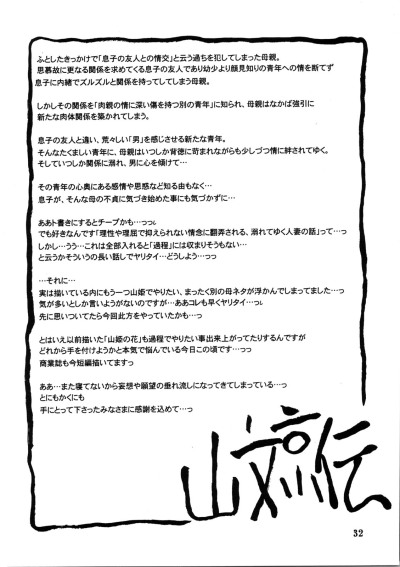 ふとしたきっかけで「息子の友人との情交」と云う過ちを犯してしまった母親。
思慕故に更なる関係を求めてくる息子の友人であり幼少より顔見知りの青年への情を断てず
息子に内緒でズルズルと関係を持ってしてしまう母親。
しかしその関係を「肉親の情に深い傷を持つ別の青年」に知られ、母親はなかば強引に
新たな肉体関係を築かれてしまう。
息子の友人と違い、荒々しい「男」を感じさせる新たな青年。
そんなたくましい青年に、母親はいつしか背徳に苛まれながらも少しづつ情に絆されてゆく。
そしていつしか関係に溺れ、男に心を傾けて…
その青年の心奥にある感情や思惑など知る由もなく…
息子が、そんな母の不貞に気づき始めた事にも気づかずに…
ああト書きにするとチープかも…っっ
でも好きなんです「理性や理屈で抑えられない情念に翻弄される、溺れてゆく人妻の話」って…っ
しかし…うう…これは全部入れると「過程」には収まりそうもない…
と云うかそういうの長い話しでヤリタイ…どうしよう…っっ
…それに…
実は描いている内にもう一つ山姫でやりたい、まったく別の母ネタが浮かんでしまってました…っ
気が多いとしか言いようがないのですが…ああコレも早くヤリタイ…っ
先に思いついてたら今回此方をやっていたかも…っ
とはいえ以前描いた「山姫の花」も過程でやりたい事出来上がってたりするんですが
どれから手を付けようかと本気で悩んでいる今日この頃です…っっ
商業誌も今短編描いてますっ
ああ…また寝てないから妄想や願望の垂れ流しになってきてしまっている…っ
とにもかくにも
手にとって下さったみなさまに感謝を込めて…っ
32